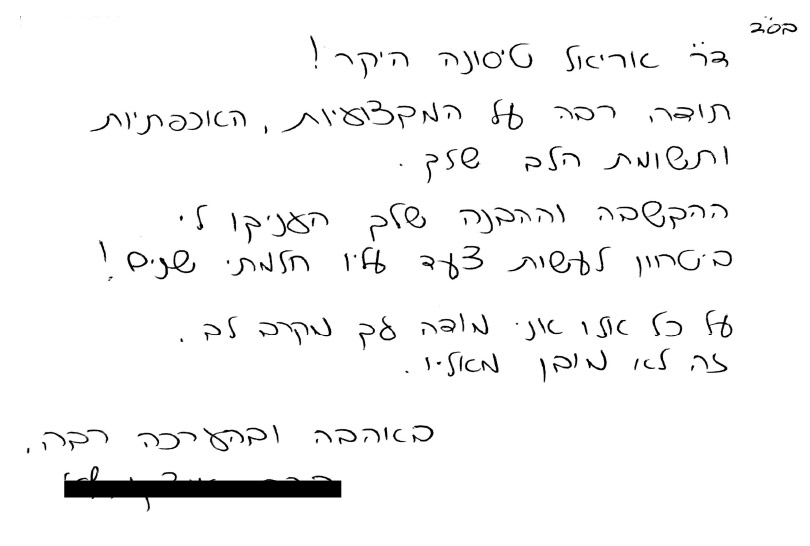 בס"ד
ד"ר אוריאל טיסונה היקר!
תודה רבה על המקצועיות, האכפתיות
ותשומת הלב שלך.
ההקשבה וההבנה שלך העניקו לי
ביטחון לעשות צעד עליו חלמתי שנים!
על כל אלו אני מודה לך מקרב לב.
זה לא מובן מאליו.
באהבה ובהערכה רבה,